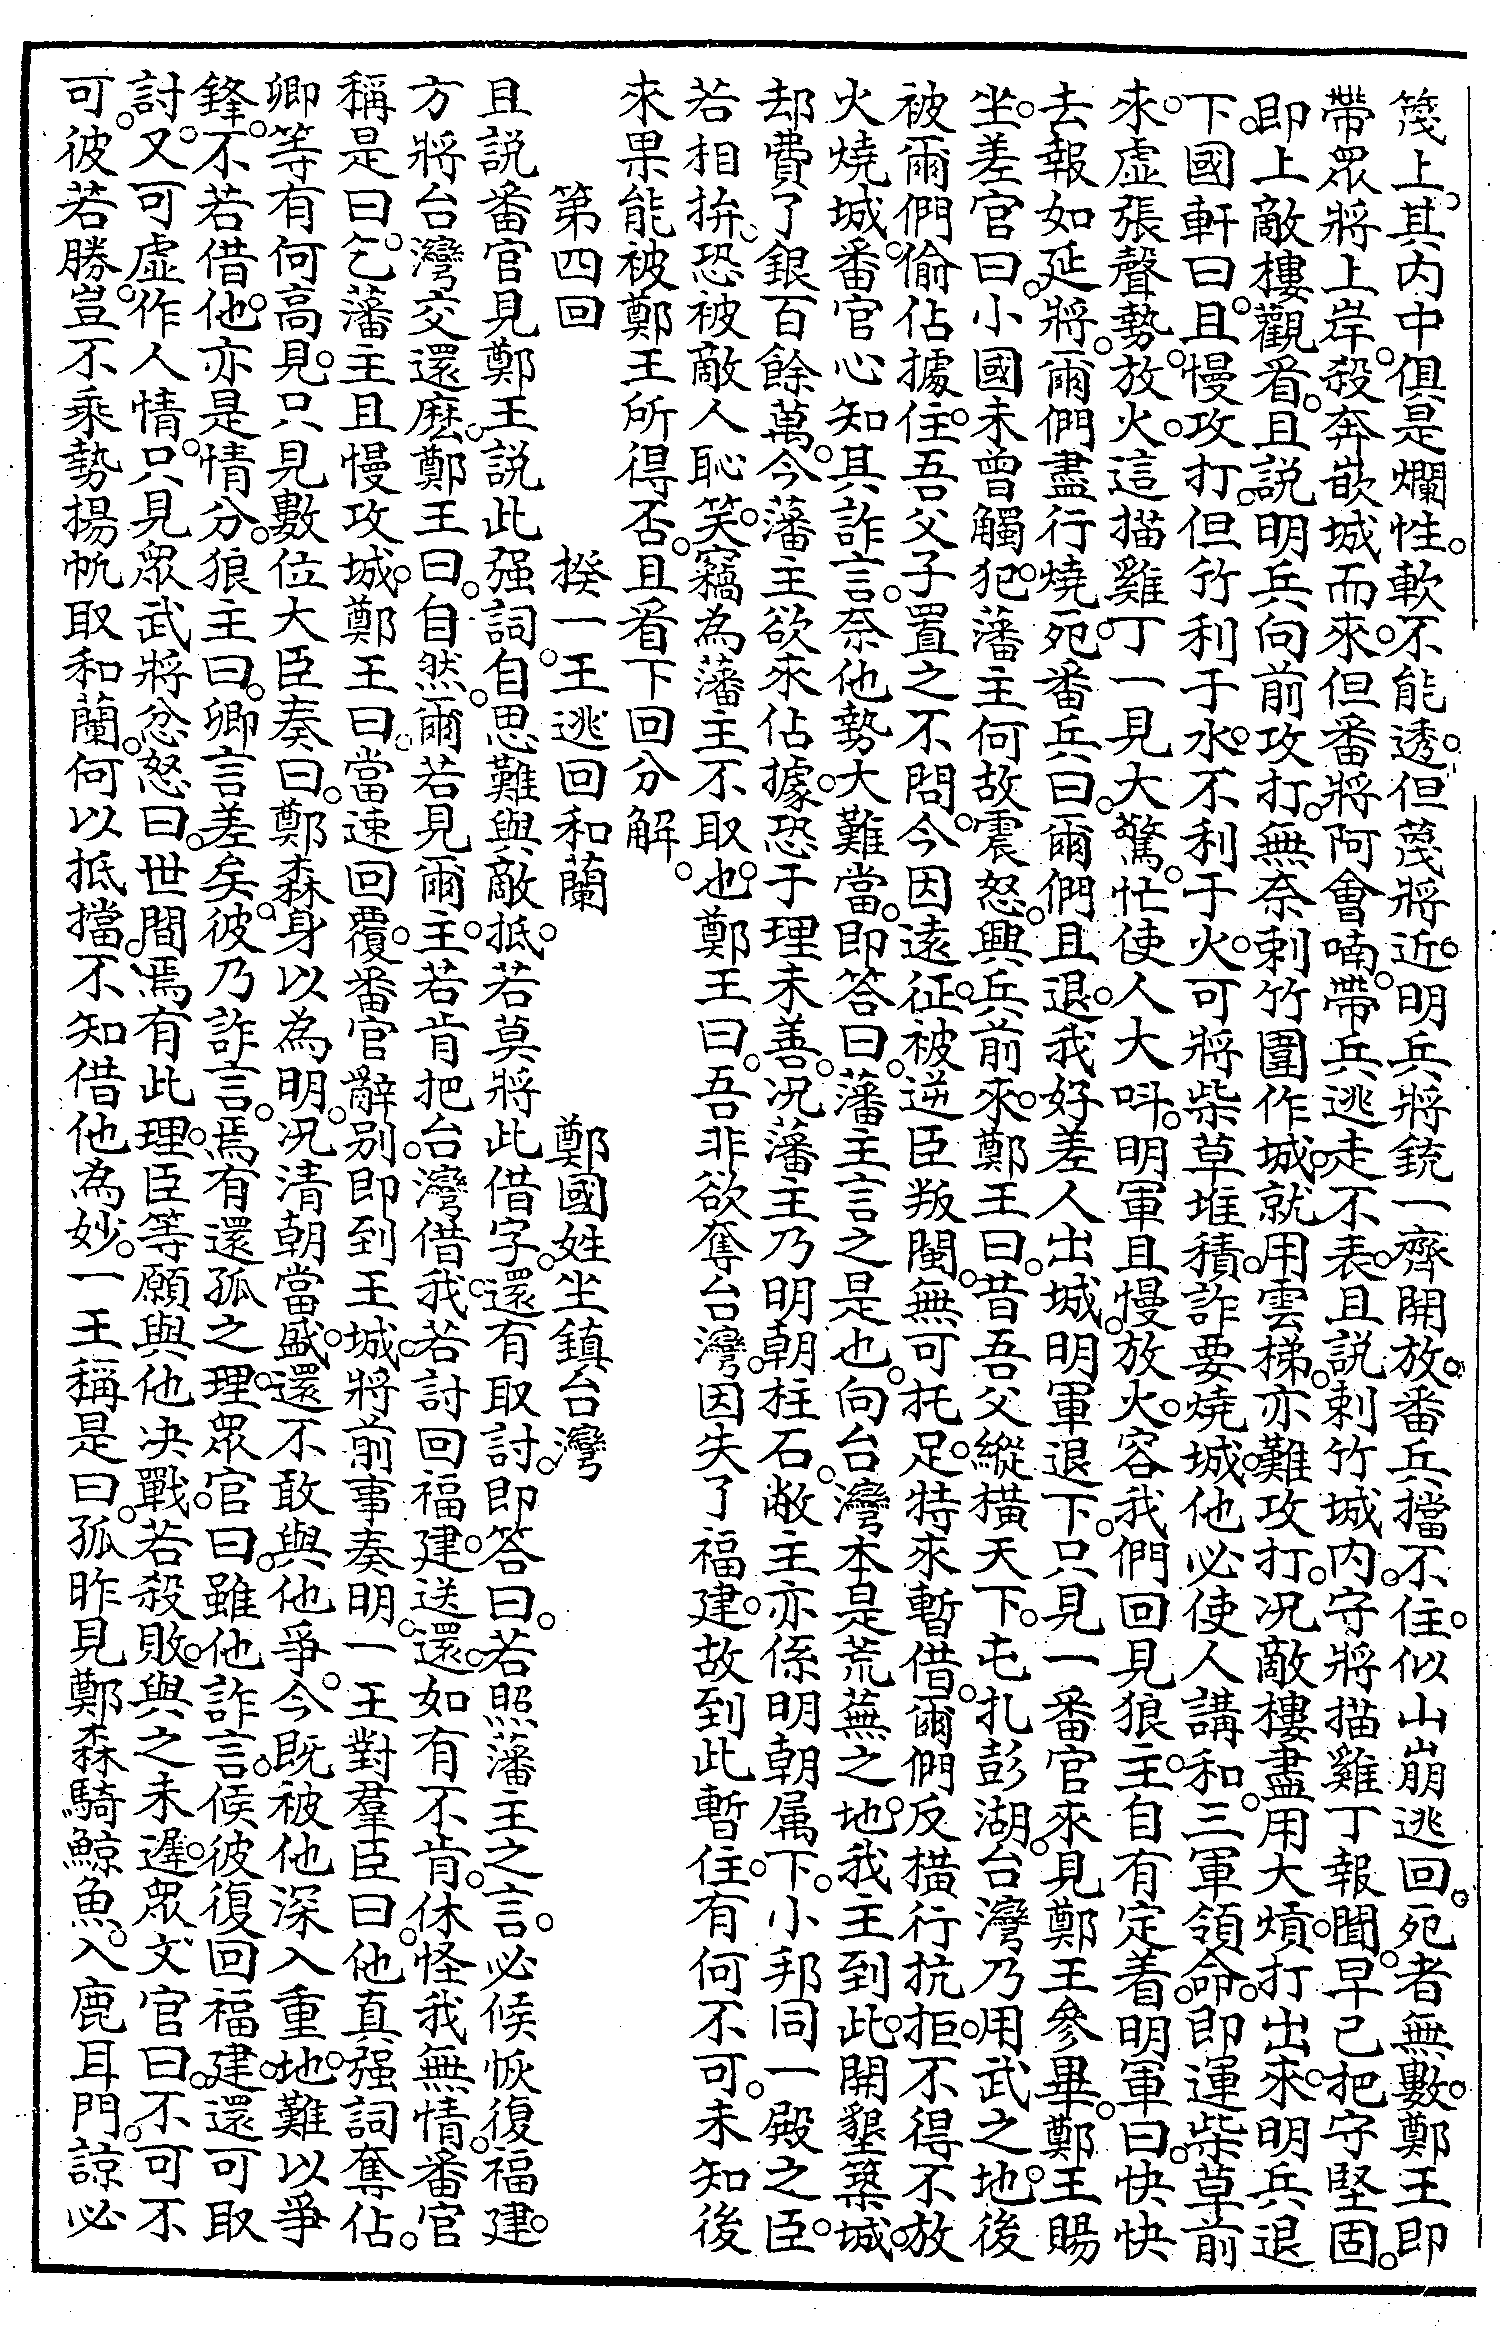 篾上其内中俱是爛性。軟不能透。但篾將近。明兵將銃一齊開放。番兵擋不住。似山崩逃回。死者無數。鄭王即
帶眾將上岸。殺奔嵌城而來。但番將阿會喃。帶兵逃走不表。且説刺竹城内。守將描雞丁報聞。早已把守堅固。
即上敵樓觀看。且説明兵向前攻打。無奈刺竹圍作城。就用雲梯。亦難攻打。况敵樓盡用大熕。打出來。明兵退
下。國軒曰。且慢攻打。但竹利于水。不利于火。可將柴草堆積。詐要燒城。他必使人講和。三軍領命。即運柴草前
來。虛張聲勢。放火。這描雞丁一見大驚。忙使人大呌。明軍且慢放火。容我們回見狼主。自有定着。明軍曰。快快
去報如延。將爾們盡行燒死。番兵曰。爾們且退。我好差人出城。明軍退下。只見一番官來見鄭王參畢。鄭王賜
坐。差官曰。小國未曾觸犯。藩主何故震怒。興兵前來。鄭王曰。昔吾父縱橫天下。屯扎彭湖。台灣乃用武之地。後
被爾們偷佔據住。吾父子置之不問。今因遠征。被逆臣叛閩。無可托足。特來暫借。爾們反橫行抗拒。不得不放
火燒城。番官心知其詐言。奈他勢大難當。即答曰。藩主言之是也。向台灣本是荒蕪之地。我主到此。開墾築城。
却費了銀百餘萬。今藩主欲來佔據。恐于理未善。况藩主乃明朝柱石。敝主亦係明朝属下。小邦同一殿之臣。
若相拚。恐被敵人恥笑。竊為藩主不取也。鄭王曰。吾非欲奪台灣。因失了福建。故到此暫住。有何不可。未知後
來果能被鄭王所得否。且看下回分解。
第四回　揆一王逃回和蘭　鄭國姓坐鎮台灣
且説番官見鄭王説此强詞。自思難與敵抵。若莫將此借字。還有取討。即答曰。若照藩主之言。必候恢復福建。
方將台灣交還麽。鄭王曰。自然。爾若見爾主。若肯把台灣借我。若討回福建。送還。如有不肯。休怪我無情。番官
稱是曰。乞藩主且慢攻城。鄭王曰。當速回覆。番官辭别。即到王城。將前事奏明。一王對羣臣曰。他真强詞奪佔。
卿等有何高見。只見數位大臣奏曰。鄭森身以為明。况清朝當盛。還不敢與他爭。今既被他深入重地。難以爭
鋒。不若借他。亦是情分。狼主曰。卿言差矣。彼乃詐言。焉有還孤之理。眾官曰。雖他詐言。候彼復回福建。還可取
討。又可虛作人情。只見眾武將忿怒曰。世間焉有此理。臣等願與他决戰。若殺敗。與之未遲。眾文官曰。不可不
可。彼若勝。豈不乘勢揚帆取和蘭。何以抵擋。不知借他為妙。一王稱是曰。孤昨見鄭森騎鯨魚。入鹿耳門。諒必